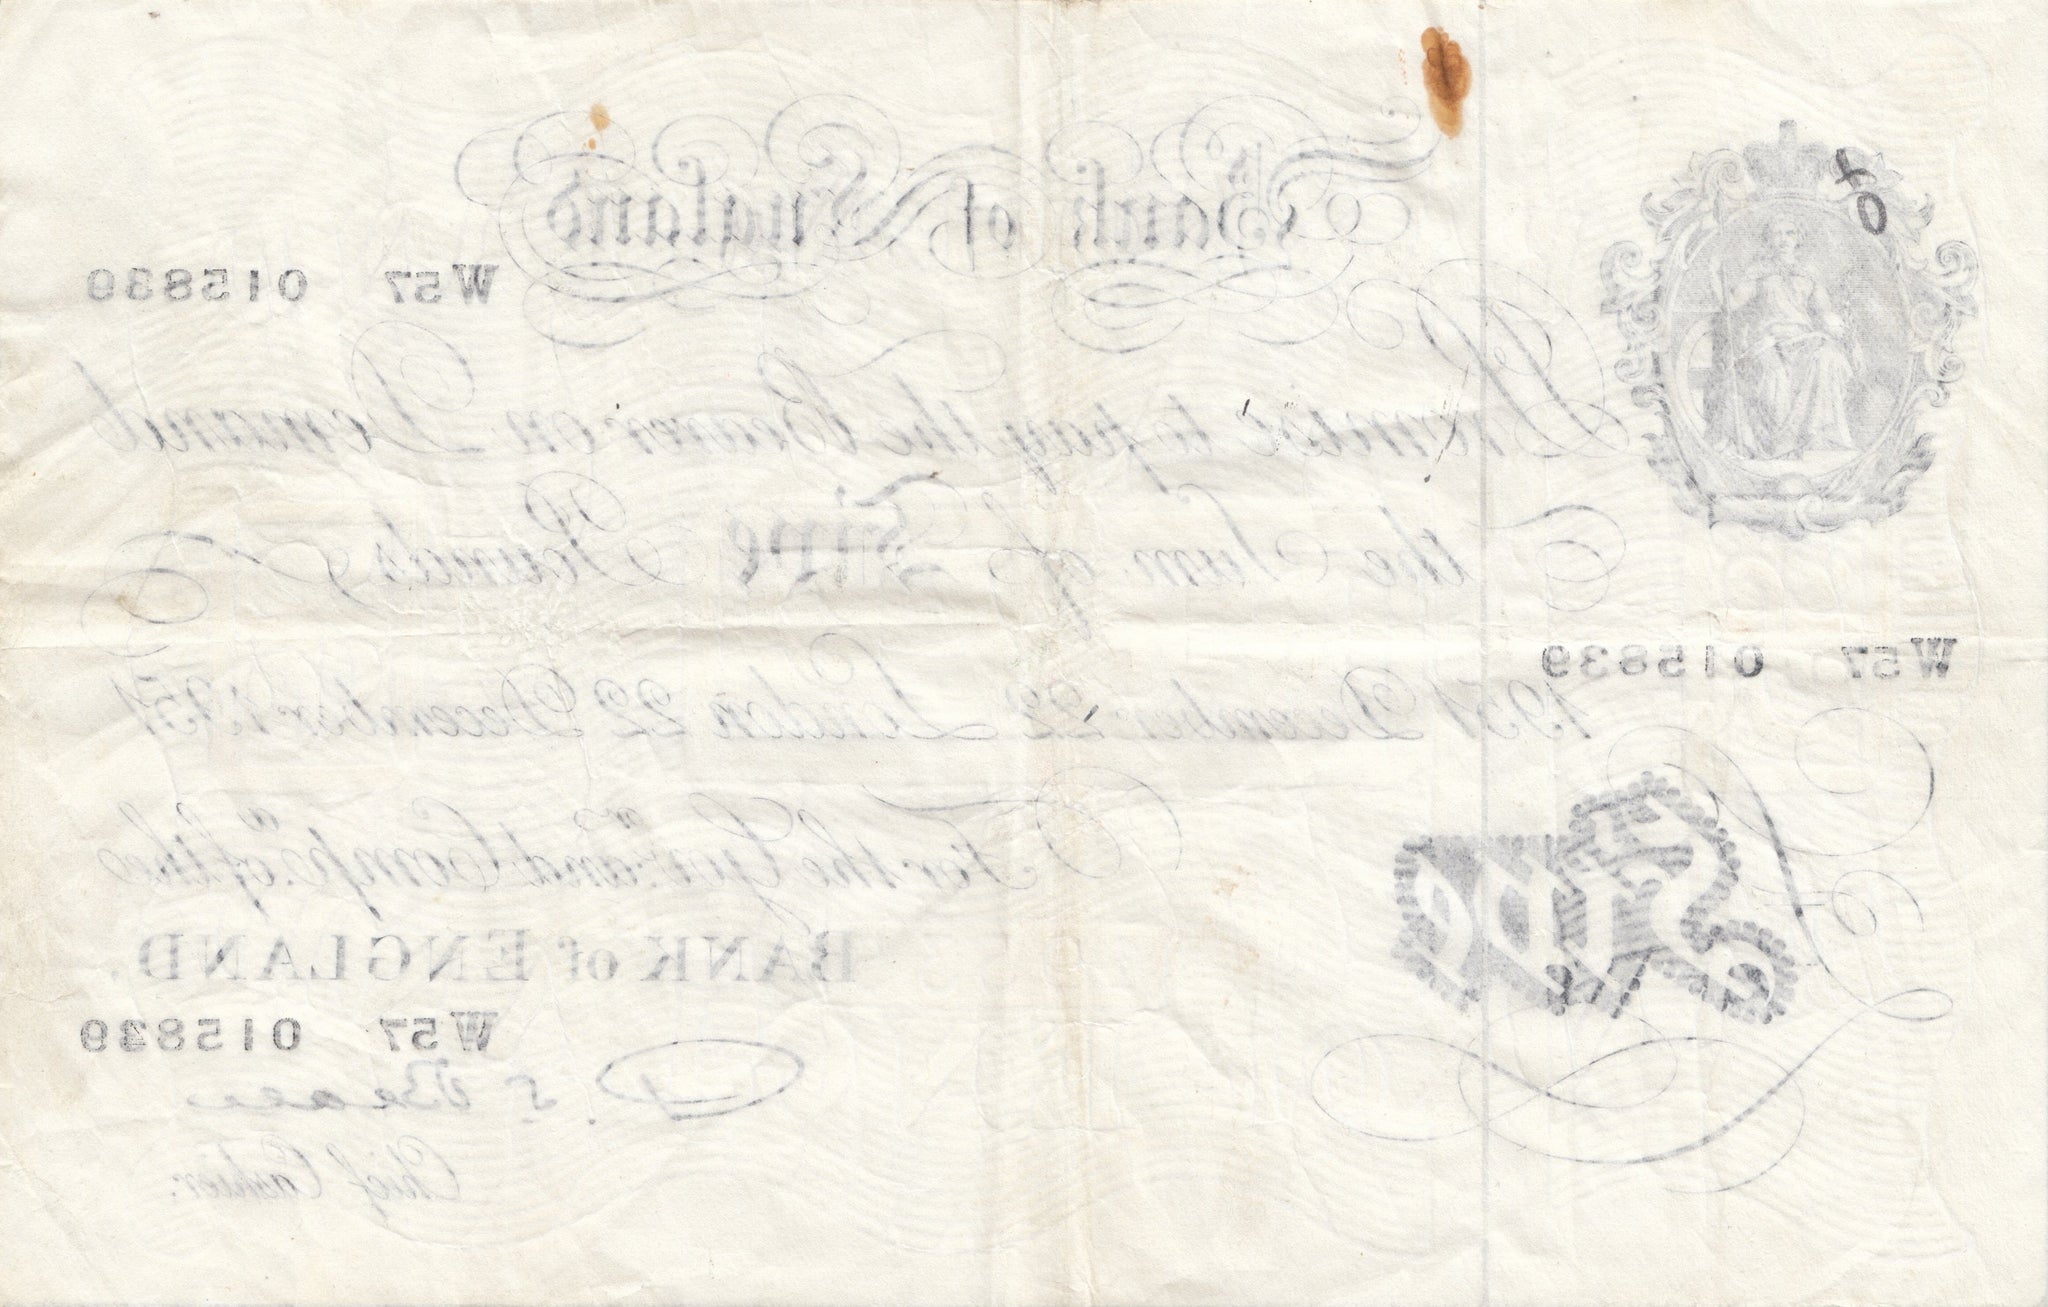 Bank of England
W57 015839
Promise to pay the Bearer on Demand
the Sum of Five Pounds
W57 015839
1951 December 22 London 22 December 1951
For the Gov.r and Comp.a of the
BANK of ENGLAND.
Five
W57 015839
P. S. Beale
Chief Cashier.